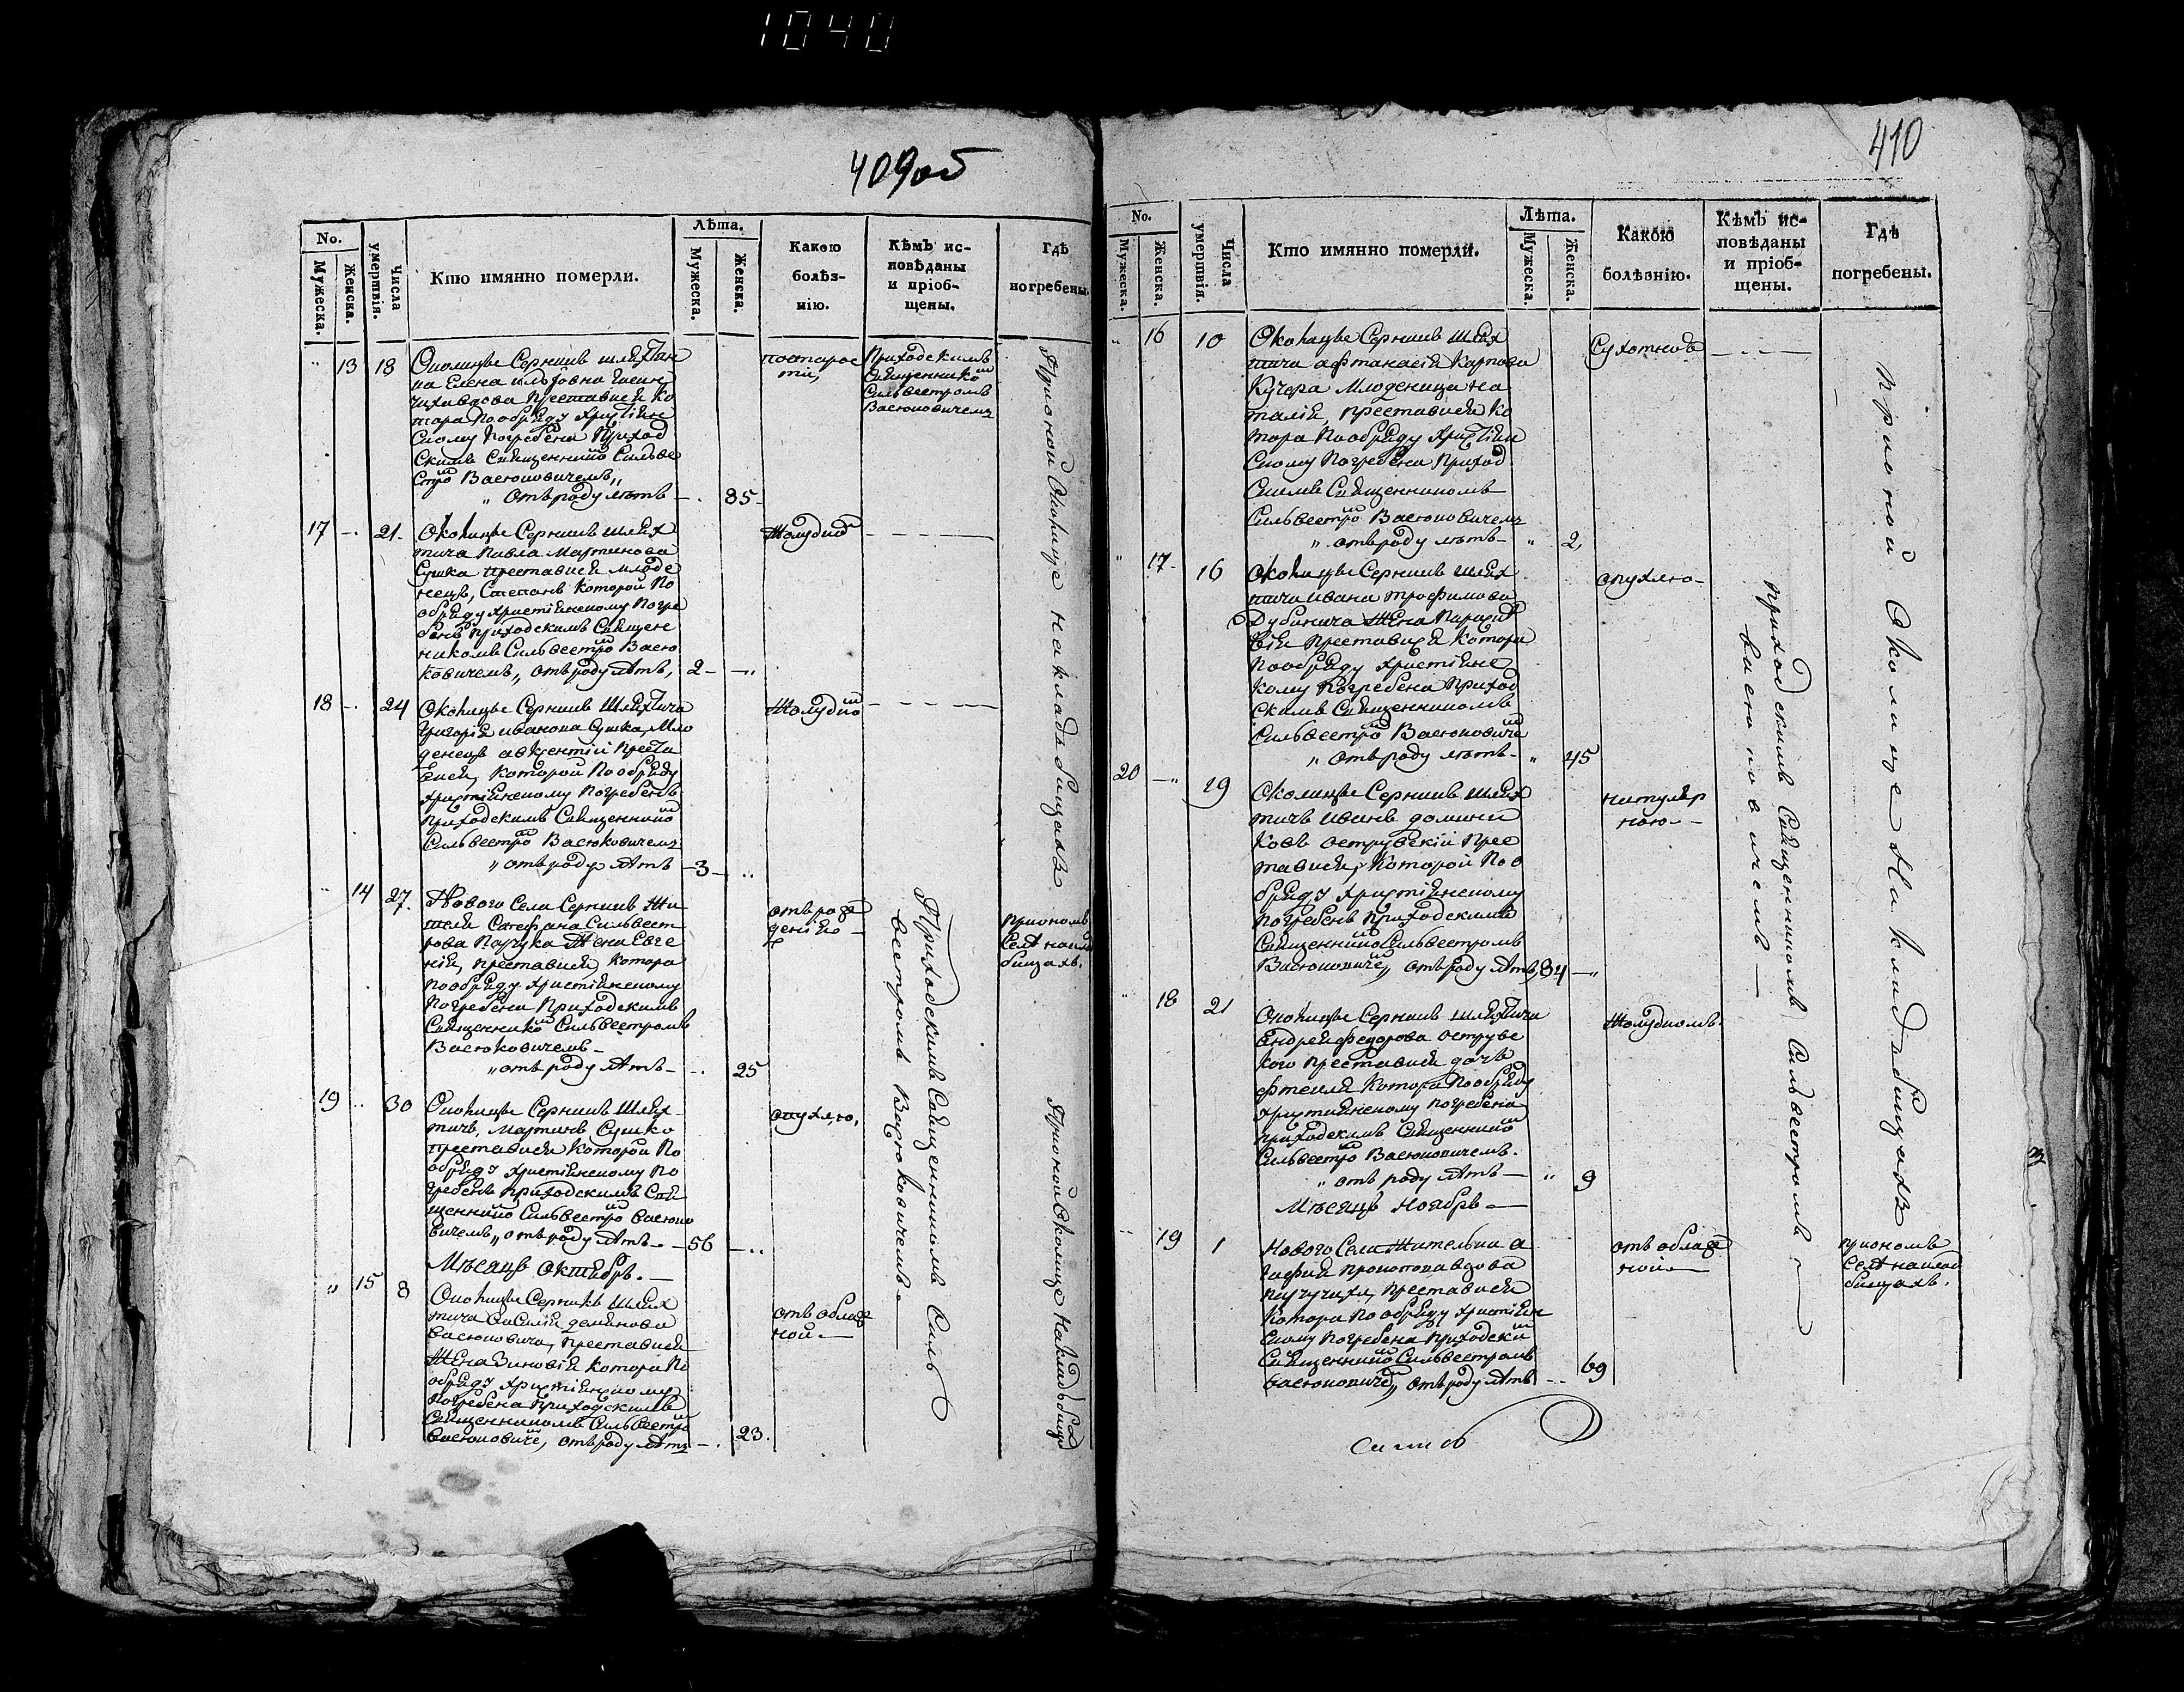 1040
409об
No.
Мужеска.
Женска.
Числа умертвія.
Кто имянно померли.
Лѣта.
Мужеска.
Женска.
Какою
болѣз-
нію.
Кѣмъ ис-
повѣданы
и пріоб-
щены.
Гдѣ
погребены.
13 18 Околицы Серникъ шляхтян
ка Елена
вдова преставися ко
тора по обряду христіян
скому погребена приход
скимъ священнико Сильве
стро Васюковичемъ,,
,, отъ роду лѣтъ — 85
по старос
ти,
Приходскимъ
Священнико
Сильвестромъ
Васюковичемъ
При оной Околице на кладьбищахъ
17 21. Околицы Серникъ шлях
тича Павла Мартинова
Сушка преставися младе
нецъ, Степанъ которой по
обряду христіянскому погре
бенъ приходскимъ священ
никомъ Сильвестро Васю
ковичемъ,, отъ роду лѣтъ, 2
Жолудко
18 24 Околицы Серникъ Шляхтича
Григорія Иванова Сушка мло
денецъ Авксентій преста
вися, которой по обряду
христіянскому погребенъ
приходскимъ священнико
Сильвестро Васюковичемъ
,, отъ роду лѣтъ — 3
Жолудко
14 27. Нового Села Серникъ жи
теля Стефана Сильвест
рова жена Евге
нія, преставися, котора
по обряду христіянскому
погребена приходскимъ
Священнико Сильвестромъ
Васюковичемъ
,, отъ роду лѣтъ — 25
отъ рож
денія
при ономъ
селѣ на клад
бищахъ.
Приходскимъ Священникомъ Силь
вестромъ Васюковичемъ
19 30 Околицы Серникъ Шлях
тичъ, Мартинъ Сушко
преставися которой по
обряду христіянскому по
гребенъ приходскимъ Свя
щеннико Сильвестро Васюко
вичемъ,, отъ роду лѣтъ — 56
опухлю,
При оной Околице на кладьбищ
Мѣсяцъ Октябрь. —
15 8 Околицы Серникъ шлях
тича Василія Демянова
Васюковича, преставися
жена Зиновія котора по
обряду христіянскому
погребена приходскимъ
Священникомъ Сильвестро
Васюковиче, отъ роду лѣтъ — 23.
отъ облож
ной —
410
No.
Мужеска.
Женска.
Числа умертвія.
Кто имянно померли.
Лѣта.
Мужеска.
Женска.
Какою
болѣзнію.
Кѣмъ ис-
повѣданы
и пріоб-
щены.
Гдѣ
погребены.
16 10 Околицы Серникъ шлях
тича Афтанасія Карпова
Кучера младеница На
талія, преставися ко
тора по обряду христіян
скому погребена приход
скимъ Священникомъ
Сильвестро Васюковичемъ
,, отъ роду лѣтъ ,, 2,
Сухотною
17 16 Околицы Серникъ шлях
тича Ивана Трофимова
Дубинича жена Параске
вія преставися котора
по обряду христіянс
кому погребена приход
скимъ Священникомъ
Сильвестро Васюковиче
,, отъ роду лѣтъ ,, 45
опухлю —
20 19 Околицы Серникъ шлях
тичъ Иванъ Домини
ковъ Острувскій прес
тавися, которой по о
бряду христіянскому
погребенъ приходскимъ
Священнико Сильвестромъ
Васюковиче,, отъ роду лѣтъ, 84
натуляр
ною —
18 21 Околицы Серникъ шляхтича
Андрея Федорова Острувс
кого преставися дочь
котора по обряду
христіянскому погребена
приходскимъ Священнико
Сильвестро Васюковичемъ.
,, отъ роду лѣтъ — ,, 9
Жолудкомъ.
Приходскимъ Священникомъ Сильвестромъ
Васюковичемъ —
При оной Околице на кладьбищахъ
Мѣсяцъ Ноябрь —
19 1 Нового Села жительки А
гафия Прокопова вдова
преставися
котора по обряду христіян
скому погребена приходски
Священнико Сильвестромъ
Васюковиче,, отъ роду лѣтъ — 69
отъ облож
ной —
при ономъ
селѣ на клад
бищахъ.